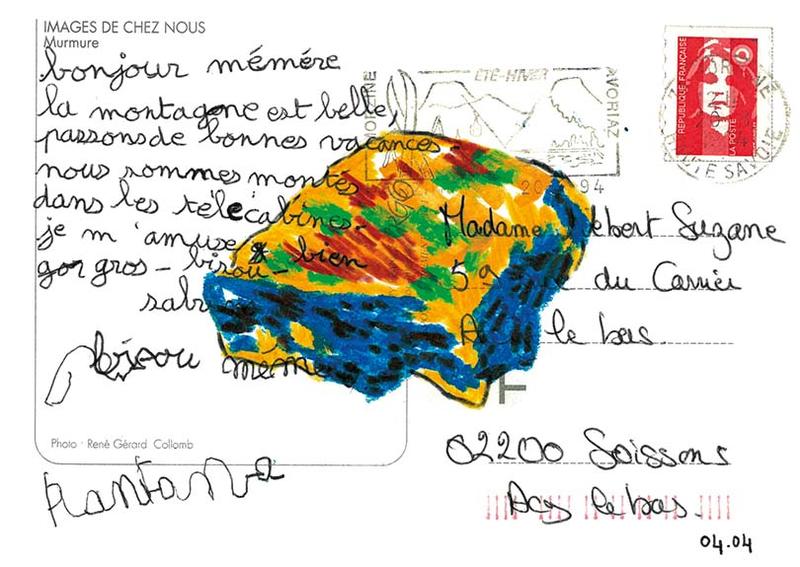 IMAGES DE CHEZ NOUS
Murmure
bonjour mémére
la montagene est belle,
passons de bonnes vacances.
nous sommes montés
dans les télécabines.
je m'amuse bien
gros - bisou -
sabr
bisou mémé
Photo · René Gérard Collomb
MORZINE
ÉTÉ-HIVER
AVORIAZ
20 94
RÉPUBLIQUE FRANÇAISE
LA POSTE
HTE SAVOIE
Madame bert Suzane
59 du Carrier
le bas.
02200 Soissons
Acy le bas.
04.04